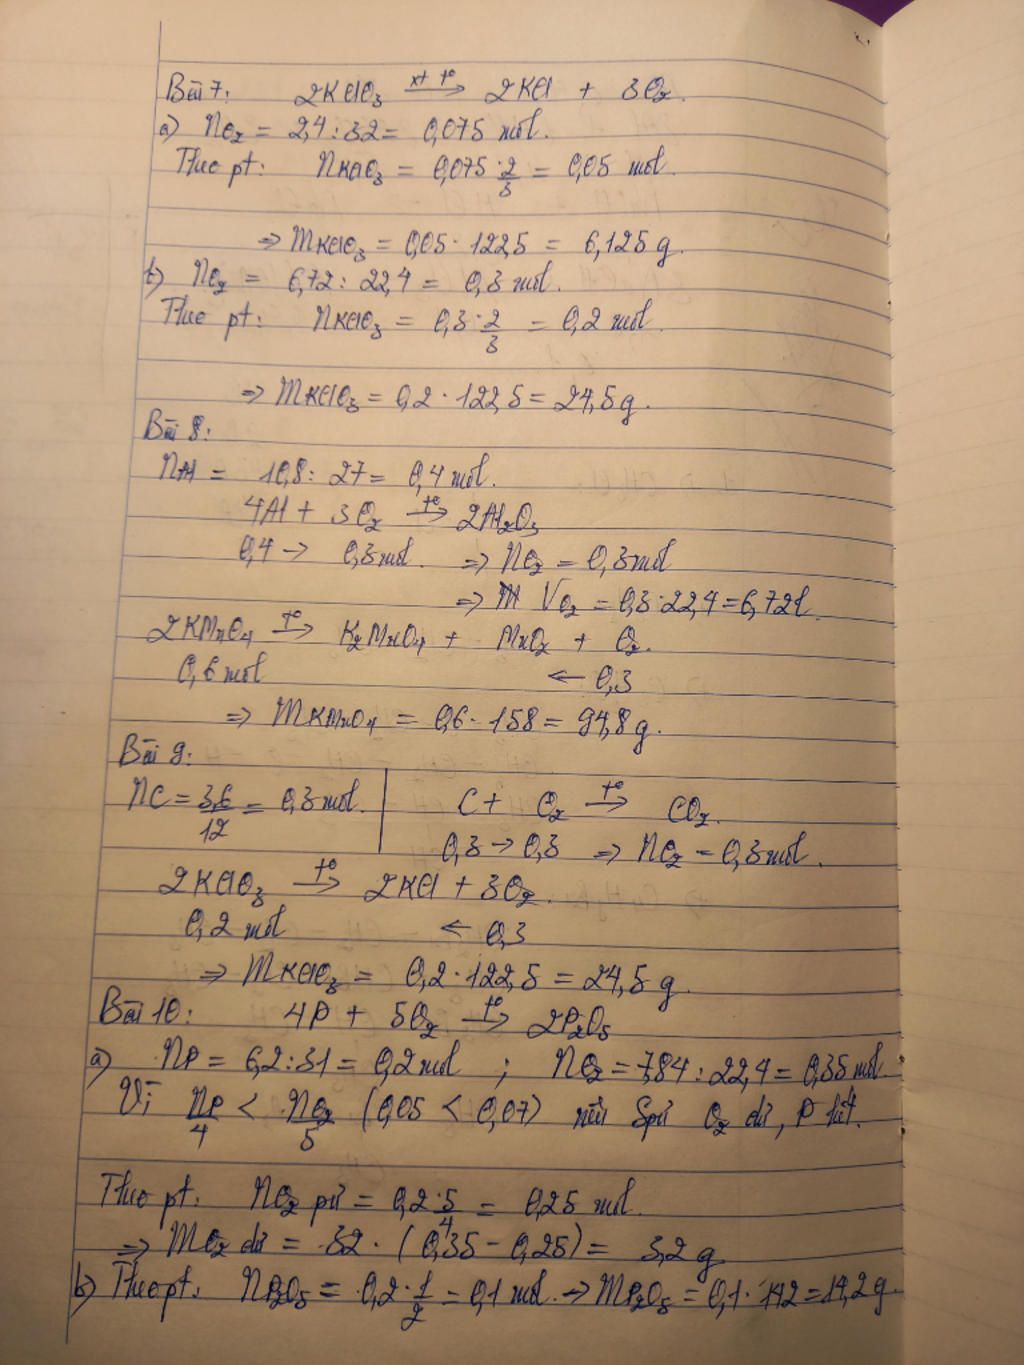 Bài 7: 2KClO₃ xt t° → 2KCl + 3O₂.
a) nO₂ = 2,4 : 32 = 0,075 mol.
Theo pt: nKClO₃ = 0,075 · 2/3 = 0,05 mol.
=> mKClO₃ = 0,05 · 122,5 = 6,125 g.
b) nO₂ = 6,72 : 22,4 = 0,3 mol.
Theo pt: nKClO₃ = 0,3 · 2/3 = 0,2 mol.
=> mKClO₃ = 0,2 · 122,5 = 24,5 g.
Bài 8:
nAl = 10,8 : 27 = 0,4 mol.
4Al + 3O₂ t° → 2Al₂O₃
0,4 → 0,3 mol. => nO₂ = 0,3 mol
=> VO₂ = 0,3 · 22,4 = 6,72 l.
2KMnO₄ t° → K₂MnO₄ + MnO₂ + O₂.
0,6 mol ← 0,3
=> mKMnO₄ = 0,6 · 158 = 94,8 g.
Bài 9:
nC = 3,6/12 = 0,3 mol. C + O₂ t° → CO₂.
0,3 → 0,3 => nO₂ = 0,3 mol.
2KClO₃ t° → 2KCl + 3O₂.
0,2 mol ← 0,3
=> mKClO₃ = 0,2 · 122,5 = 24,5 g.
Bài 10: 4P + 5O₂ t° → 2P₂O₅
a) nP = 6,2 : 31 = 0,2 mol ; nO₂ = 7,84 : 22,4 = 0,35 mol
Vì nP/4 < nO₂/5 (0,05 < 0,07) nên Spứ O₂ dư, P hết.
Theo pt: nO₂ pứ = 0,2 · 5/4 = 0,25 mol.
=> mO₂ dư = 32 · (0,35 - 0,25) = 3,2 g
b) Theo pt: nP₂O₅ = 0,2 · 1/2 = 0,1 mol. → mP₂O₅ = 0,1 · 142 = 14,2 g.